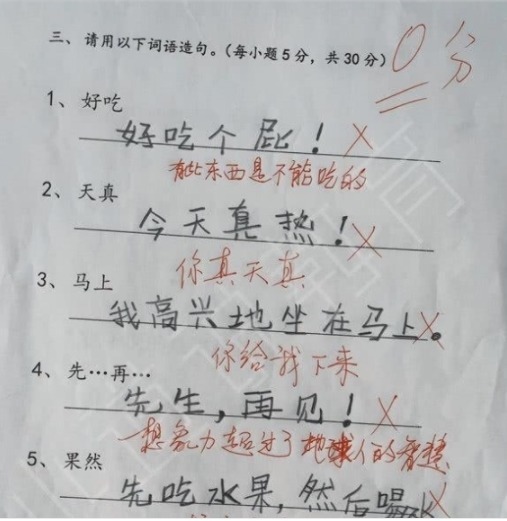 三、请用以下词语造句。(每小题5分，共30分) 0分
1、好吃
好吃个屁！
有些东西是不能吃的
2、天真
今天真热！
你真天真
3、马上
我高兴地坐在马上。
你给我下来
4、先…再…
先生，再见！
想象力超过了地球人的智慧
5、果然
先吃水果，然后喝水